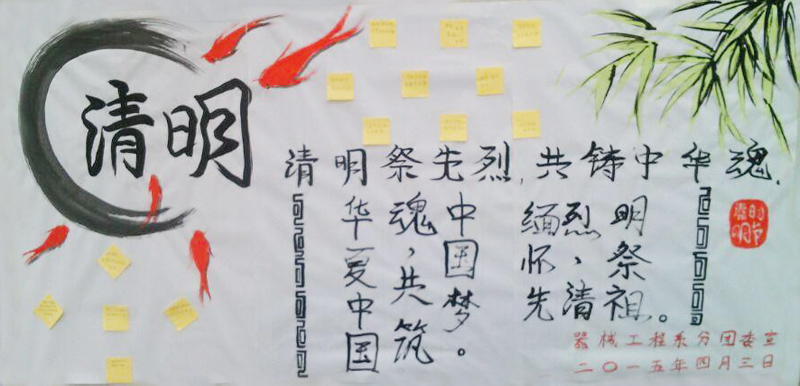 清明
清明祭先烈,共铸中华魂.
华夏中国
魂,共筑
中国梦。
缅怀先
烈,清
明祭祖。
器械工程系分团委宣
二〇一五年四月三日